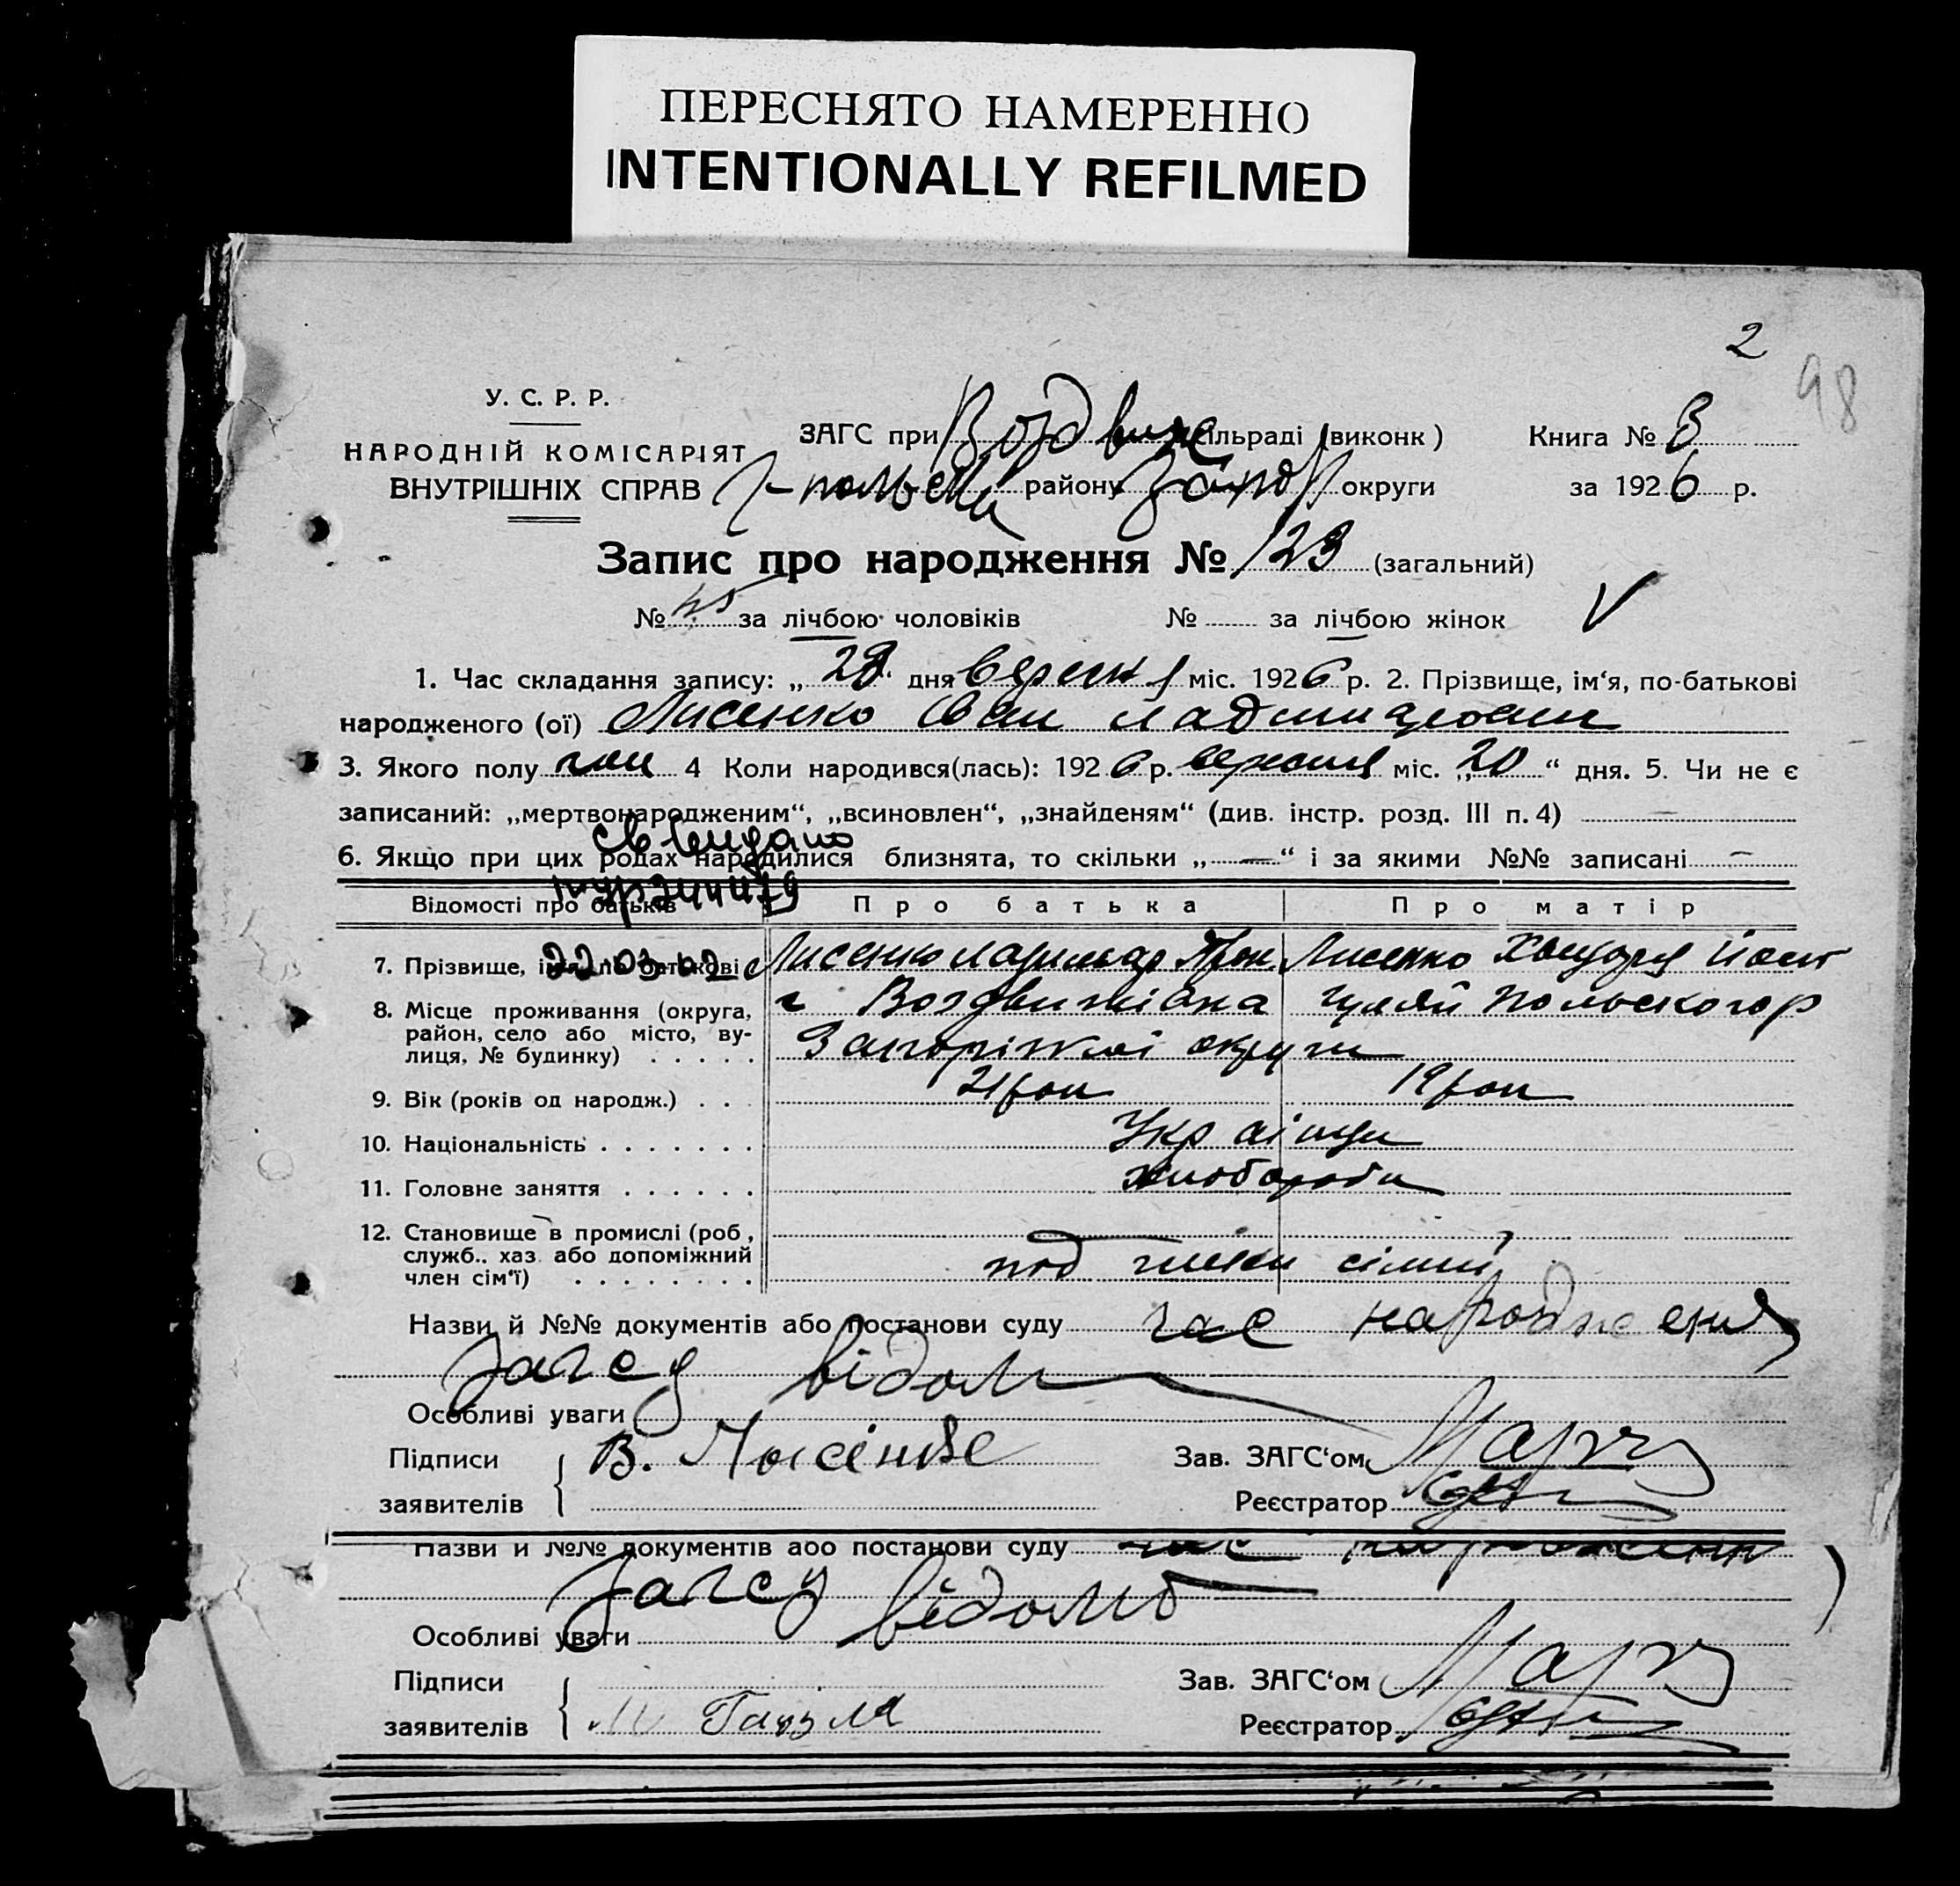 ПЕРЕСНЯТО НАМЕРЕННО
INTENTIONALLY REFILMED
2
98
У. С. Р. Р.
НАРОДНІЙ КОМІСАРІЯТ
ВНУТРІШНІХ СПРАВ
ЗАГС при Воздвиж сільраді (виконк)
Книга № 3
району Запор округи
за 1926 р.
Запис про народження № 123 (загальний)
№ 45 за лічбою чоловіків № за лічбою жінок
V
1. Час складання запису: „28“ дня вересня міс. 1926 р. 2. Прізвище, ім‘я, по-батькові
народженого (ої) Лисенко Іван
3. Якого полу чол 4 Коли народився(лась): 1926 р. вересня міс. „20“ дня. 5. Чи не є
записаний: „мертвонародженим“, „всиновлен“, „знайденям“ (див. інстр. розд. III п. 4) —
6. Якщо при цих родах народилися близнята, то скільки „—“ і за якими №№ записані —
Відомості про батьків
Про батька
Про матір
22.03.02
7. Прізвище, ім‘я, по батькові Лисенко Лисенко
8. Місце проживання (округа, район, село або місто, вулиця, № будинку) Воздвижівка Гуляй Польского р
Запоріжкої округи
9. Вік (років од народж.) 21 рок 19 рок
10. Національність Українци
11. Головне заняття хлібороби
12. Становище в промислі (роб, служб.. хаз. або допоміжний член сім‘ї) члени сімьї
Назви й №№ документів або постанови суду час народженя
загсу відом
Особливі уваги
Підписи
заявителів
В. Лисенко
Зав. ЗАГС‘ом
Реєстратор
Назви й №№ документів або постанови суду час народження
загсу відомо
Особливі уваги
Підписи
заявителів
Зав. ЗАГС‘ом
Реєстратор